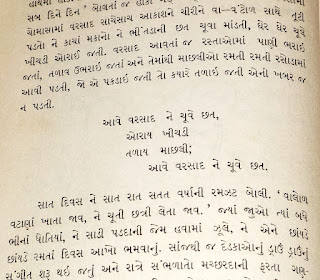 સબ દિને દિન' બોલતાં જ હોકા
ચોમાસામાં વરસાદ સાથેસાથ આકાશને ચીરીને વા-વંટોળ સાથે તૂટી
પડતો ને કાચાં મકાનો ને ભીંતડાંની છત ચૂવા માંડતી, ઘેર ઘેર ચૂલે
ખીચડી ઓરાઈ જતી. વરસાદ આવતાં જ રસ્તાઓમાં પાણી ભરાઈ
જતાં, તળાવ ઉભરાઈ જતાં અને તેમાંથી માછલીઓ રમતી રમતી રસોડામાં
આવી પડતી, જો એ પકડાઈ જતી તો ક્યારે તળાઈ જતી એની ખબર જ
ન પડતી.
આવે વરસાદ ને ચૂવે છત,
ઓરાય ખીચડી
તળાય માછલી;
આવે વરસાદ ને ચૂવે છત.
સાત દિવસ ને સાત રાત સતત વર્ષાની રમઝટ બોલી. 'વાલોળ
વટાણાં ખાતા જાવ, ને ચૂતી છત્રી લેતા જાવ.' જ્યાં જુઓ ત્યાં બધે
ભીનાં ધોતિયાં, ને સાડી પડદાની જેમ હવામાં ઝૂલે, ને એને છાંયડે
છાંયડે રમતાં દિવસ આખો ભમવાનું. સાંજથી જ દેડકાઓનું ડ્રાઉં ડ્રાઉંનું
સંગીત શરૂ થઈ જતું અને રાત્રે સંભળાતો મચ્છરદાની ફરતો ગણ-